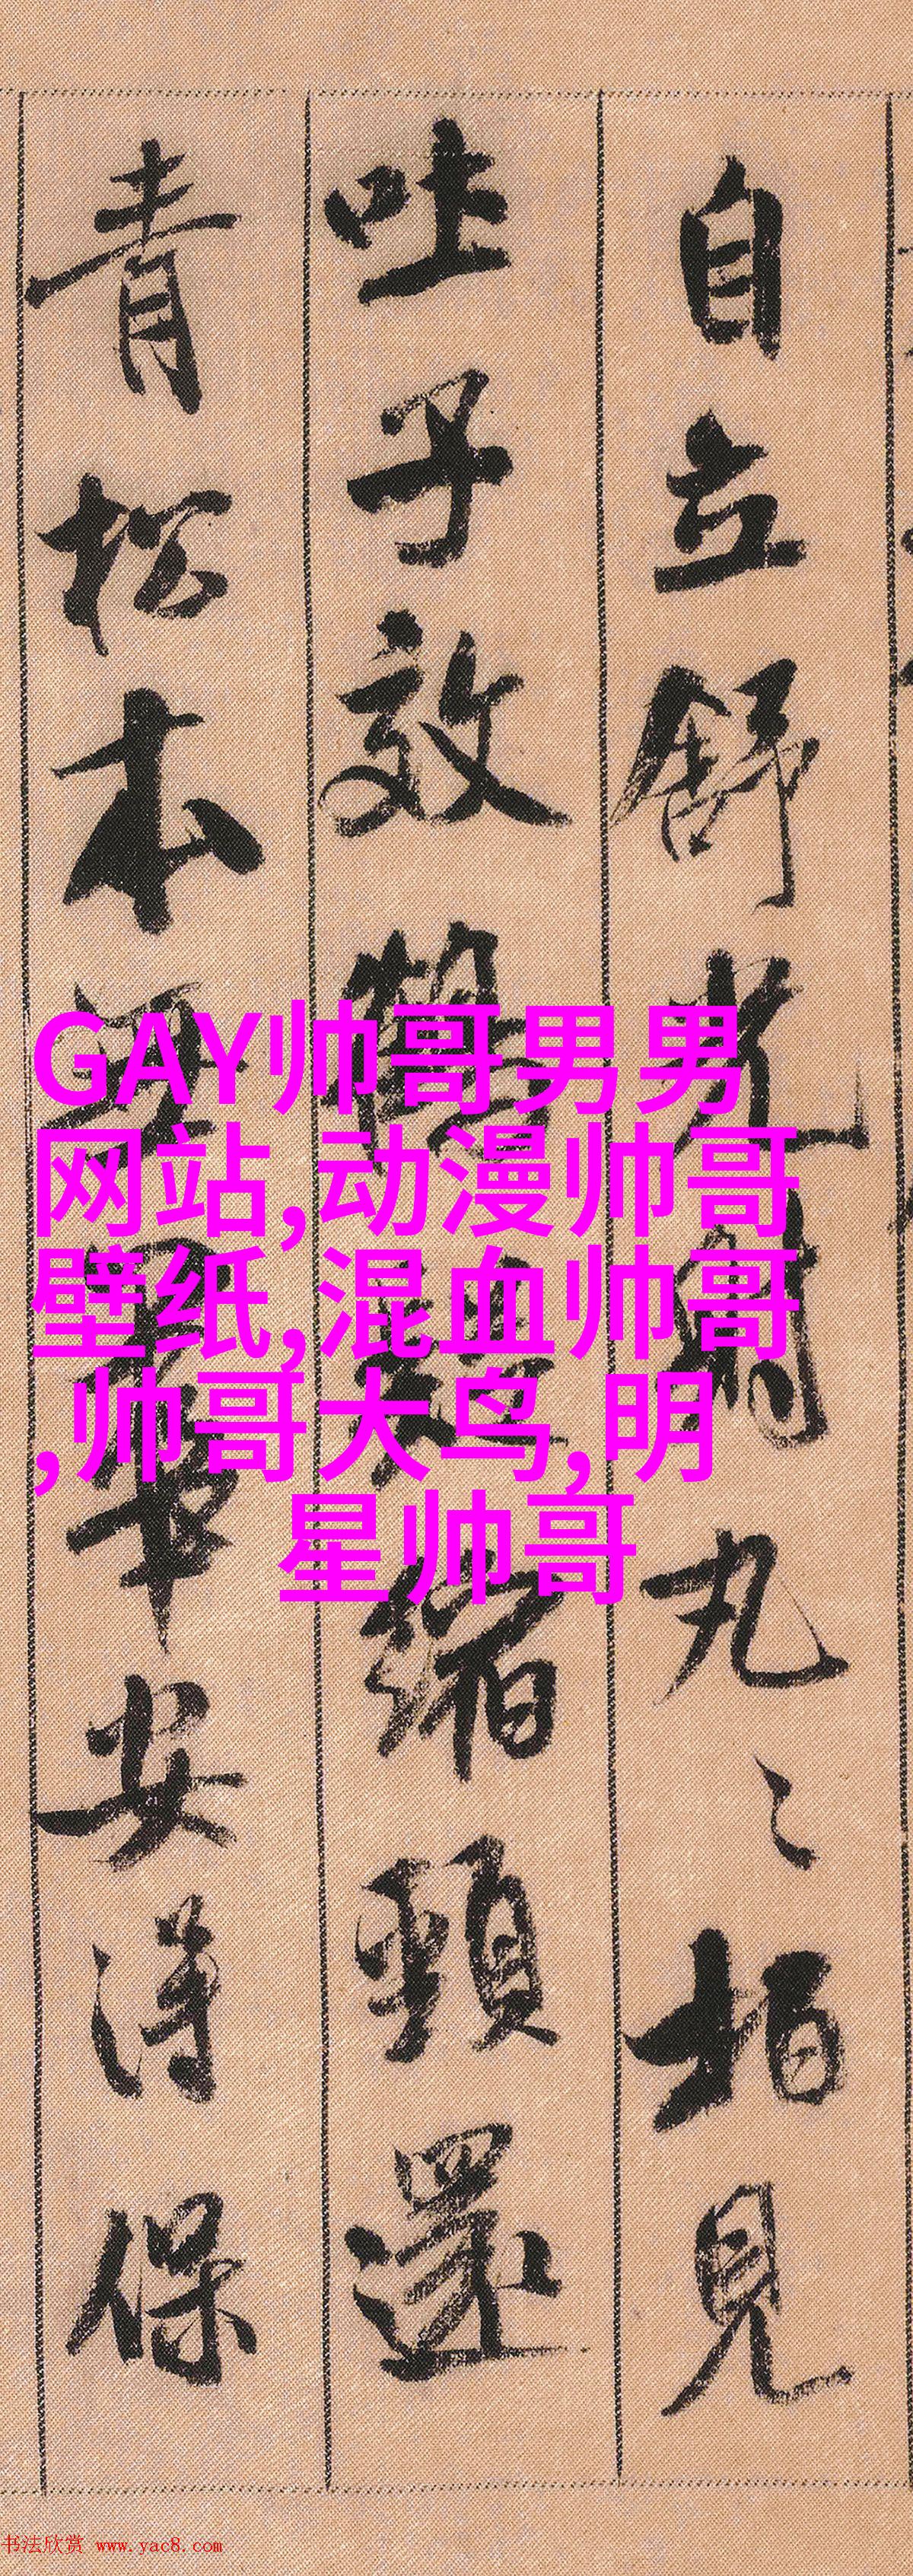 自立舒光射丸〻柏見
吐子效鶴疑縮頸還
青松本無華安得保
GAY帅哥男男
网站,动漫帅哥
壁纸,混血帅哥
,帅哥大鸟,明
星帅哥
书法欣赏 www.yac8.com